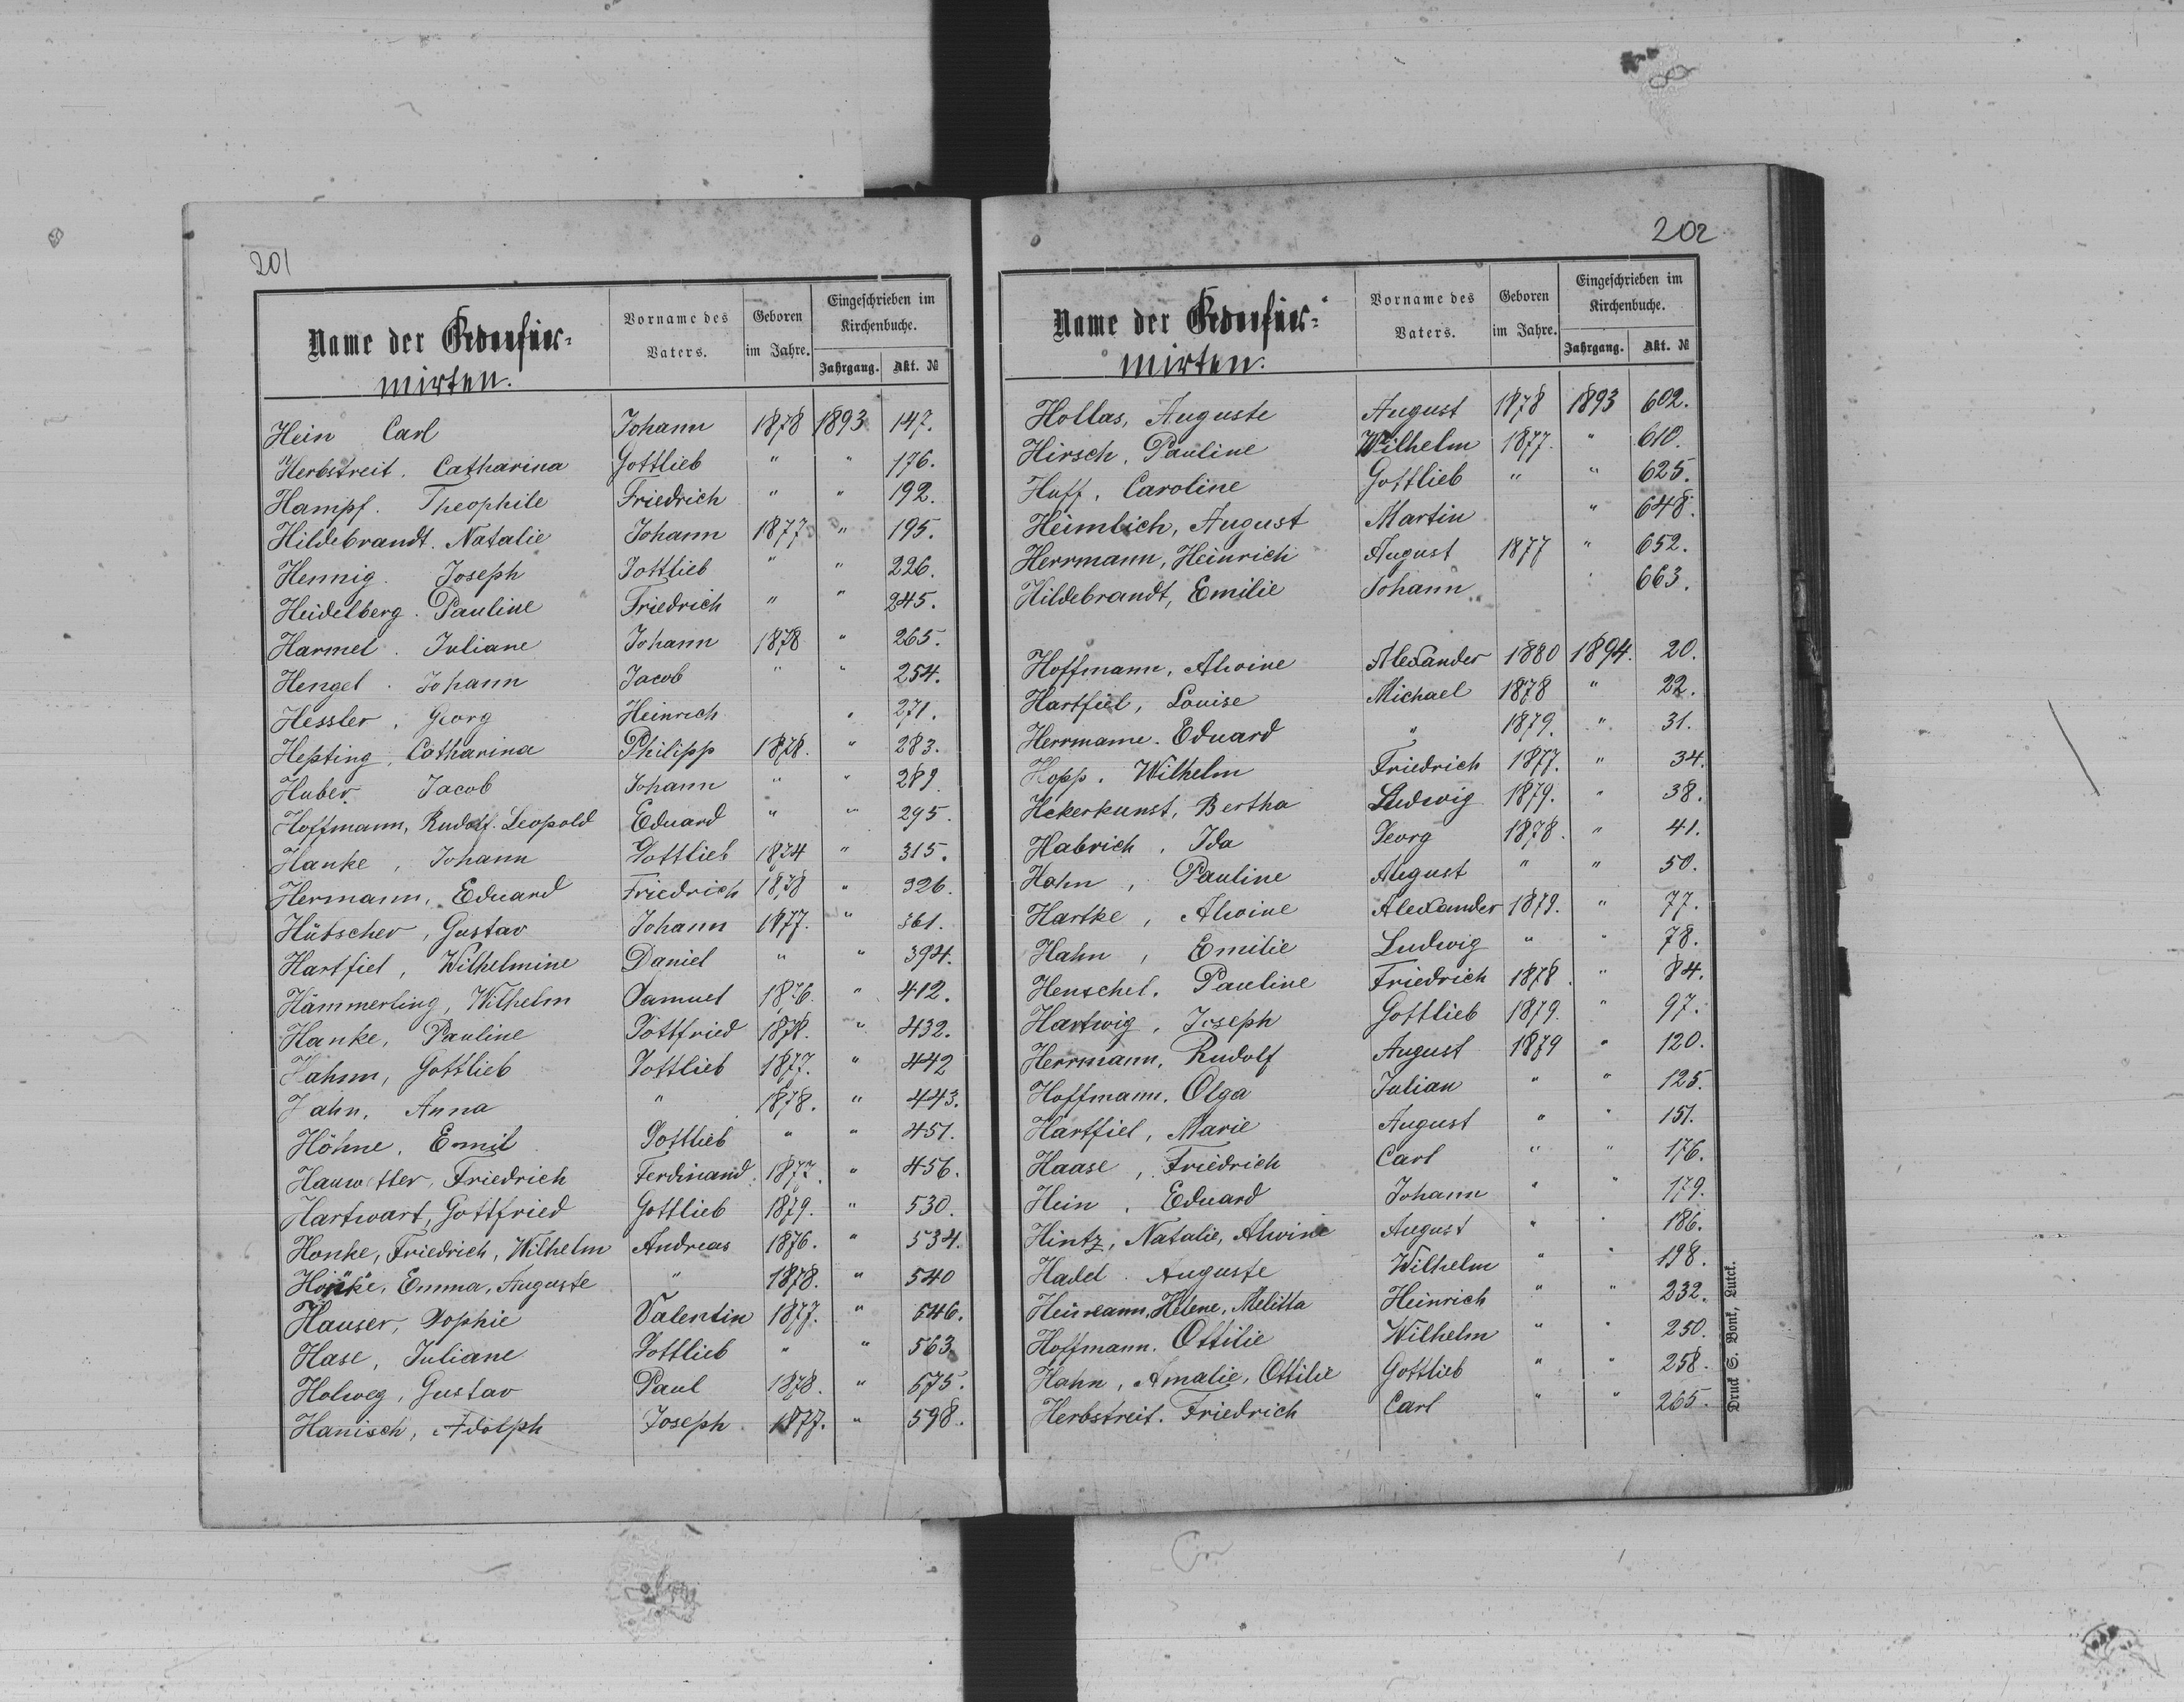 201
Name der Confir=
mirten.
Vorname des Vaters.
Geboren im Jahre.
Eingeschrieben im Kirchenbuche.
Jahrgang. Akt. №
Hein Carl Johann 1878 1893 147.
Herbstreit. Catharina Gottlieb " " 176.
Hampf. Theophile Friedrich " " 192.
Hildebrandt. Natalie Johann 1877 " 195.
Hennig. Joseph Gottlieb " " 226.
Heidelberg. Pauline Friedrich " " 245.
Harmel. Juliane Johann 1878 " 265.
Hengel. Johann Jacob " " 254.
Hessler, Georg Heinrich " 271.
Hepting, Catharina Philipp 1878. " 283.
Huber. Jacob Johann " " 289.
Hoffmann, Rudolf. Leopold Eduard " " 295.
Hanke, Johann Gottlieb 1874 " 315.
Hermann, Eduard Friedrich 1878 " 326.
Hübscher, Gustav Johann 1877. " 361.
Hartfiel, Wilhelmine Daniel " " 394.
Hämmerling, Wilhelm Samuel 1876. " 412.
Hanke, Pauline Gottfried 1878. " 432.
Hahnn, Gottlieb Gottlieb 1877. " 442
Hahn, Anna " 1878. " 443.
Höhne, Emil Gottlieb " " 451.
Hauwetter, Friedrich Ferdinand. 1877. " 456.
Hartwart, Gottfried Gottlieb 1879. " 530.
Honke, Friedrich, Wilhelm Andreas 1876. " 534.
Hönke, Emma, Auguste " 1878. " 540
Hauser, Sophie Valentin 1877. " 546.
Hase, Juliane Gottlieb " " 563.
Holweg, Gustav Paul 1878. " 575.
Hanisch, Adolph Joseph 1877. " 598.
202
Name der Confir=
mirten.
Vorname des Vaters.
Geboren im Jahre.
Eingeschrieben im Kirchenbuche.
Jahrgang. Akt. №
Hollas, Auguste August 1878 1893 602.
Hirsch, Pauline Wilhelm 1877. " 610.
Huff, Caroline Gottlieb " " 625.
Heimlich, August Martin " 648.
Herrmann, Heinrich August 1877 " 652.
Hildebrandt, Emilie Johann " 663.
Hoffmann, Alwine Alexander 1880 1894. 20.
Hartfiel, Louise Michael 1878 " 22.
Herrmann. Eduard " 1879. " 31.
Hopp. Wilhelm Friedrich 1877. " 34.
Hekerkunst, Bertha Ludwig 1879. " 38.
Habrich, Ida Georg 1878. " 41.
Hahn, Pauline August " " 50.
Hartke, Alwine Alexander 1879. " 77.
Hahn, Emilie Ludwig " " 78.
Henschel. Pauline Friedrich 1878. " 84.
Hartwig, Joseph Gottlieb 1879. " 97.
Herrmann, Rudolf August 1879 " 120.
Hoffmann. Olga Julian " " 125.
Hartfiel, Marie August " " 151.
Haase, Friedrich Carl " " 176.
Hein, Eduard Johann " " 179.
Hintz, Natalie, Alwine August " " 186.
Hadel. Auguste Wilhelm " " 198.
Heinmann, Helene, Melitta Heinrich " " 232.
Hoffmann. Ottilie Wilhelm " " 250.
Hahn, Amalie, Ottilie Gottlieb " " 258.
Herbstreit. Friedrich Carl " " 265.
Druck S. Bonk, Lutck.